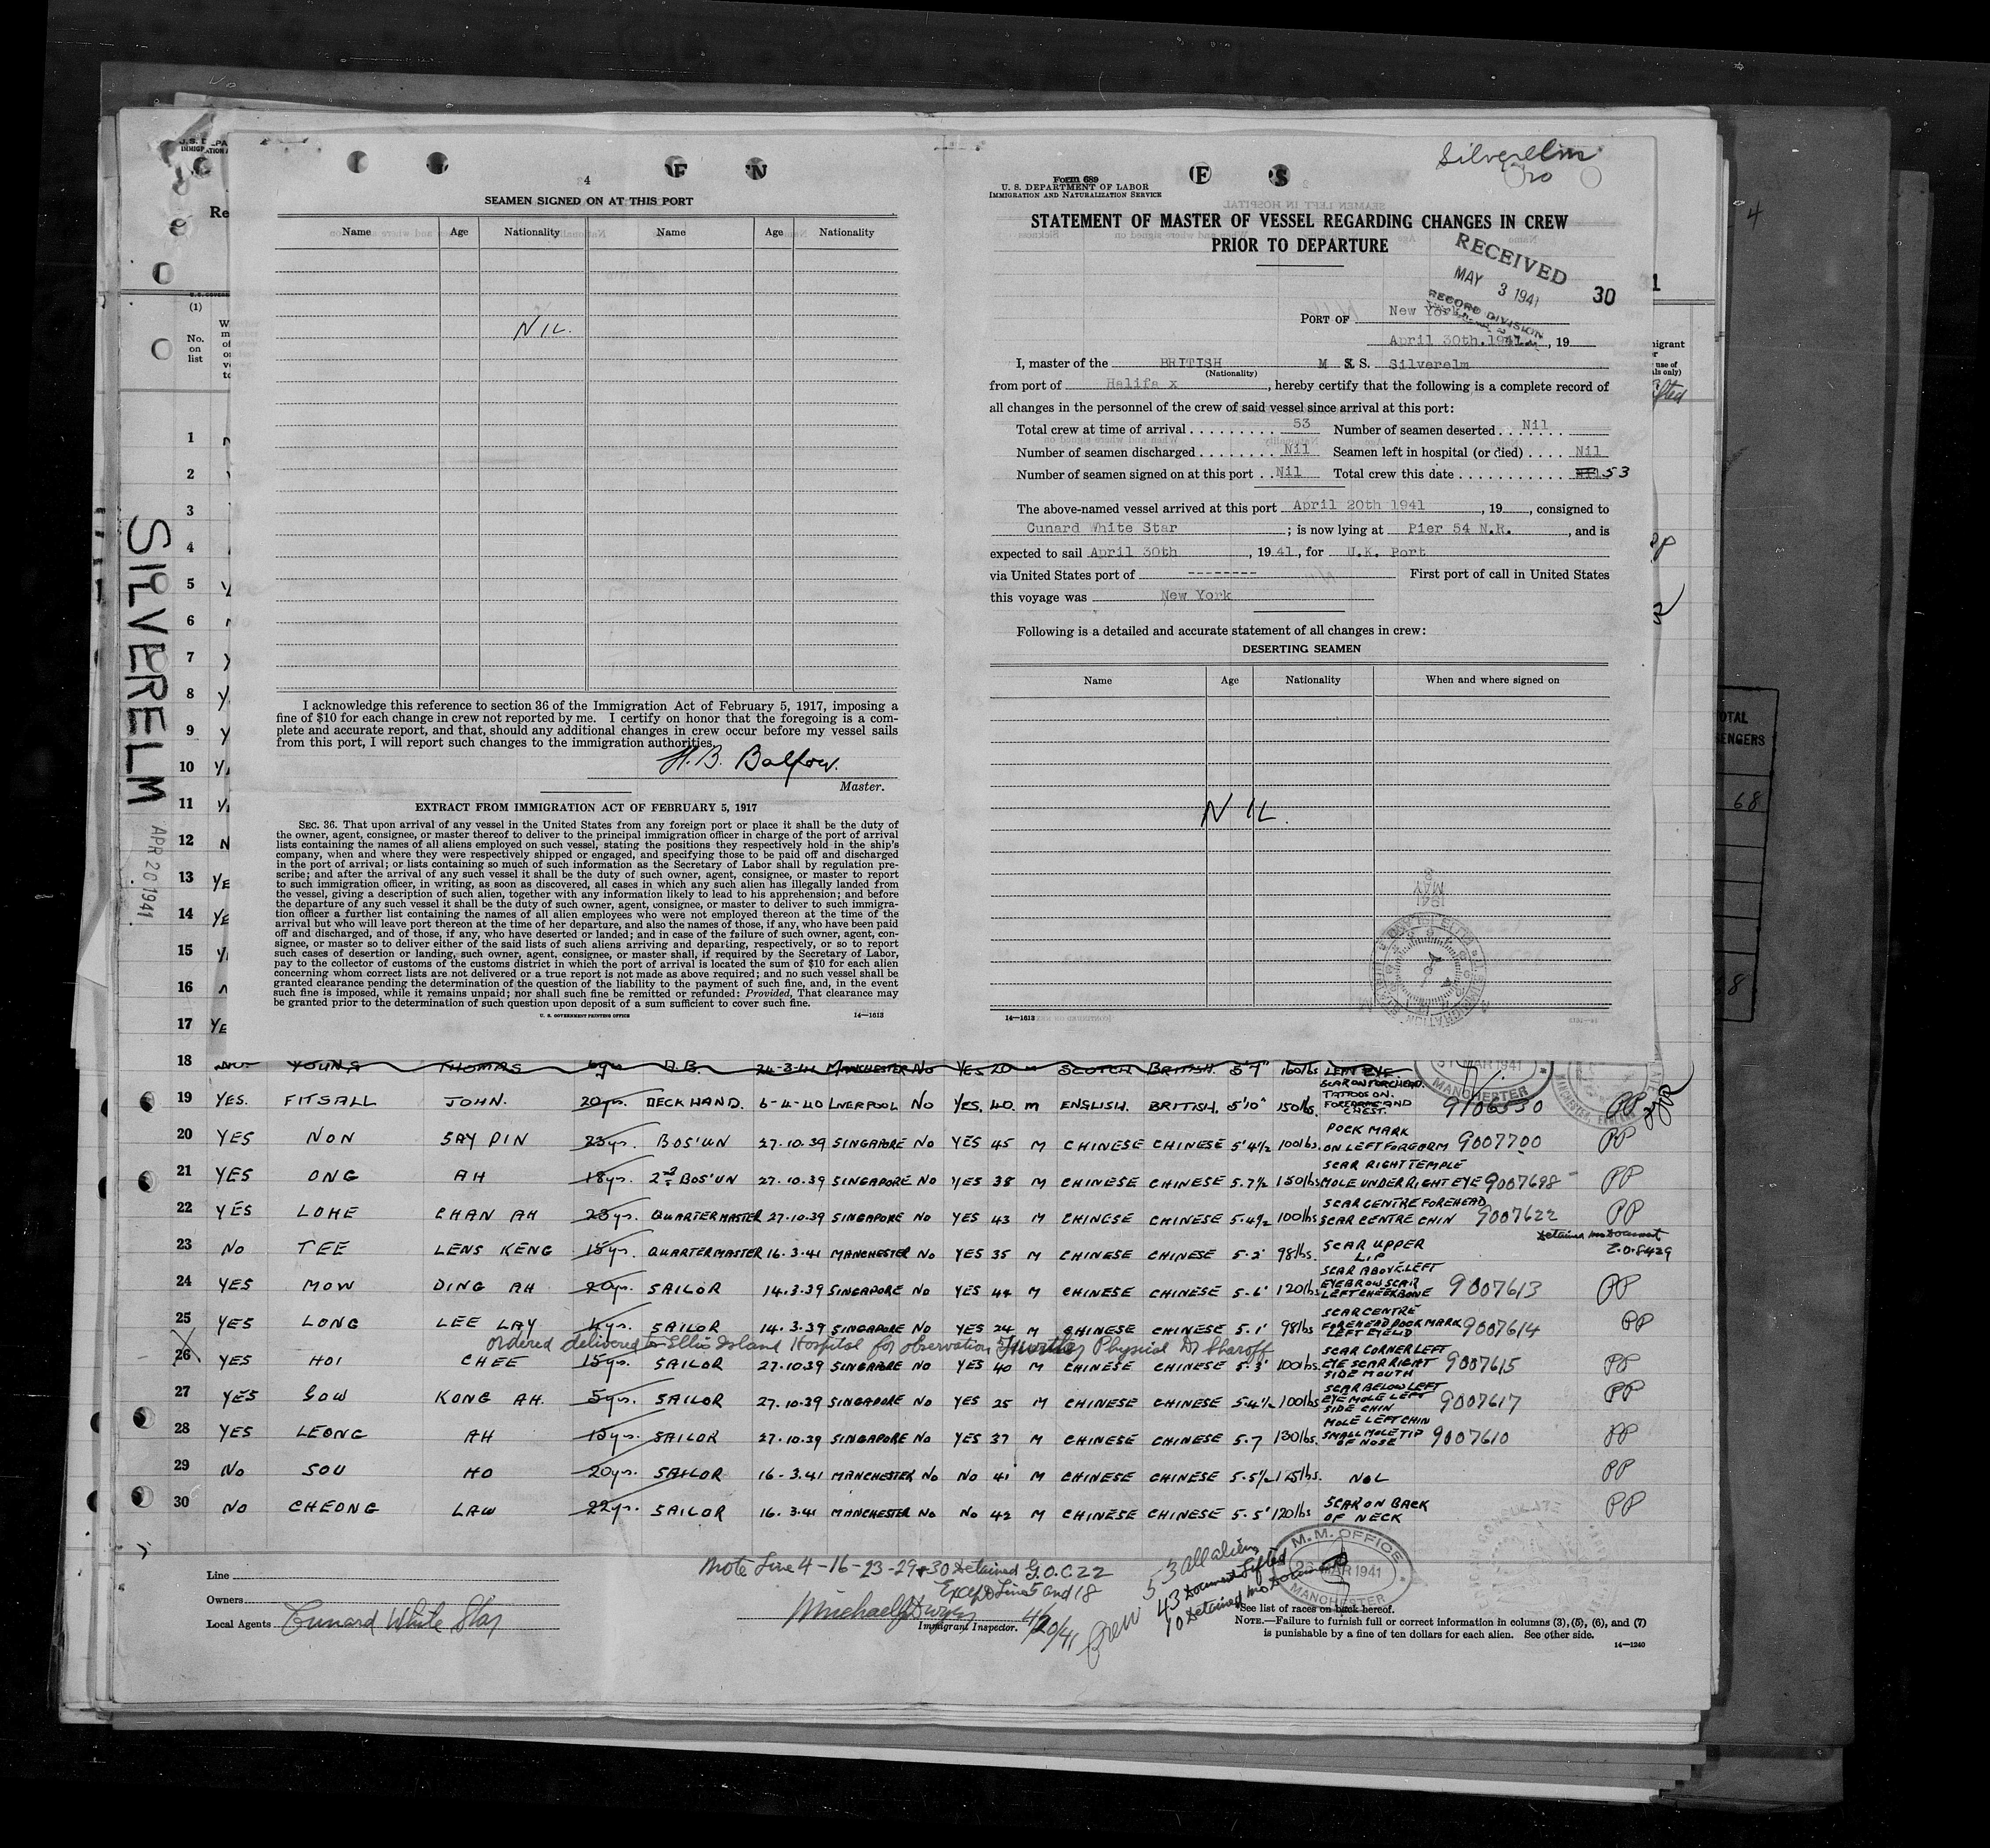 4
SEAMEN SIGNED ON AT THIS PORT
Name Age Nationality Name Age Nationality
NIL.
I acknowledge this reference to section 36 of the Immigration Act of February 5, 1917, imposing a
fine of $10 for each change in crew not reported by me. I certify on honor that the foregoing is a com-
plete and accurate report, and that, should any additional changes in crew occur before my vessel sails
from this port, I will report such changes to the immigration authorities.
H. B. Balfour.
Master.
EXTRACT FROM IMMIGRATION ACT OF FEBRUARY 5, 1917
SEC. 36. That upon arrival of any vessel in the United States from any foreign port or place it shall be the duty of
the owner, agent, consignee, or master thereof to deliver to the principal immigration officer in charge of the port of arrival
lists containing the names of all aliens employed on such vessel, stating the positions they respectively hold in the ship's
company, when and where they were respectively shipped or engaged, and specifying those to be paid off and discharged
in the port of arrival; or lists containing so much of such information as the Secretary of Labor shall by regulation pre-
scribe; and after the arrival of any such vessel it shall be the duty of such owner, agent, consignee, or master to report
to such immigration officer, in writing, as soon as discovered, all cases in which any such alien has illegally landed from
the vessel, giving a description of such alien, together with any information likely to lead to his apprehension; and before
the departure of any such vessel it shall be the duty of such owner, agent, consignee, or master to deliver to such immigra-
tion officer a further list containing the names of all alien employees who were not employed thereon at the time of the
arrival but who will leave port thereon at the time of her departure, and also the names of those, if any, who have been paid
off and discharged, and of those, if any, who have deserted or landed; and in case of the failure of such owner, agent, con-
signee, or master so to deliver either of the said lists of such aliens arriving and departing, respectively, or so to report
such cases of desertion or landing, such owner, agent, consignee, or master shall, if required by the Secretary of Labor,
pay to the collector of customs of the customs district in which the port of arrival is located the sum of $10 for each alien
concerning whom correct lists are not delivered or a true report is not made as above required; and no such vessel shall be
granted clearance pending the determination of the question of the liability to the payment of such fine, and, in the event
such fine is imposed, while it remains unpaid; nor shall such fine be remitted or refunded: Provided, That clearance may
be granted prior to the determination of such question upon deposit of a sum sufficient to cover such fine.
U. S. GOVERNMENT PRINTING OFFICE 14—1613
Silverelm
Form 689
U. S. DEPARTMENT OF LABOR
IMMIGRATION AND NATURALIZATION SERVICE
STATEMENT OF MASTER OF VESSEL REGARDING CHANGES IN CREW
PRIOR TO DEPARTURE
RECEIVED
MAY 3 1941
RECORD DIVISION
30
PORT OF New York
April 30th. 1941, 19
I, master of the BRITISH M S. S. Silverelm
(Nationality)
from port of Halifa x, hereby certify that the following is a complete record of
all changes in the personnel of the crew of said vessel since arrival at this port:
Total crew at time of arrival 53 Number of seamen deserted Nil
Number of seamen discharged Nil Seamen left in hospital (or died) Nil
Number of seamen signed on at this port Nil Total crew this date Nil 53
The above-named vessel arrived at this port April 20th 1941, 19, consigned to
Cunard White Star; is now lying at Pier 54 N.R., and is
expected to sail April 30th, 1941, for U.K. Port
via United States port of -------- First port of call in United States
this voyage was New York
Following is a detailed and accurate statement of all changes in crew:
DESERTING SEAMEN
Name Age Nationality When and where signed on
NIL.
14—1613
SILVERELM
APR 20 1941
(1)
No.
on
list
1
2
3
4
5
6
7
8
9
10
11
12
13
14
15
16
17
18 NO YOUNG THOMAS 6yrs A.B. 24-3-41 MANCHESTER NO YES 20 M SCOTCH BRITISH. 5'7" 160lbs LEFT EYE.
19 YES. FITSALL JOHN. 20yrs. DECKHAND. 6-4-40 LIVERPOOL NO YES. 40. M ENGLISH. BRITISH. 5'10" 150lbs. SCAR ON FORCHEAD. TATTOOS ON. FOREARMS AND CHEST. 9106530 PP
20 YES NON SAY PIN 23yrs. BOS'UN 27.10.39 SINGAPORE NO YES 45 M CHINESE CHINESE 5'4½ 100lbs. POCK MARK ON LEFT FOREARM 9007700 PP
21 YES ONG AH 18yrs. 2nd BOS'UN 27.10.39 SINGAPORE NO YES 38 M CHINESE CHINESE 5.7½ 130lbs SCAR RIGHT TEMPLE MOLE UNDER RIGHT EYE 9007698 PP
22 YES LOHE CHAN AH 23yrs. QUARTERMASTER 27.10.39 SINGAPORE NO YES 43 M CHINESE CHINESE 5.4½ 100lbs SCAR CENTRE FOREHEAD SCAR CENTRE CHIN 9007622 PP
23 NO TEE LENS KENG 15yrs. QUARTERMASTER 16.3.41 MANCHESTER NO YES 35 M CHINESE CHINESE 5.2' 98lbs. SCAR UPPER LIP Detained no Document
24 YES MOW DING AH 20yrs. SAILOR 14.3.39 SINGAPORE NO YES 44 M CHINESE CHINESE 5-6' 120lbs SCAR ABOVE LEFT EYEBROW SCAR LEFT CHEEKBONE 9007613 PP
25 YES LONG LEE LAY 4yrs. SAILOR 14.3.39 SINGAPORE NO YES 24 M CHINESE CHINESE 5.1' 98lbs SCAR CENTRE FOREHEAD POCK MARK LEFT EYELID 9007614 PP
Ordered delivered to Ellis Island Hospital for observation Further Physical Dr Sharoff
26 YES HOI CHEE 15yrs. SAILOR 27.10.39 SINGAPORE NO YES 40 M CHINESE CHINESE 5.3' 100lbs SCAR CORNER LEFT EYE SCAR RIGHT SIDE MOUTH 9007615 PP
27 YES GOW KONG AH. 5yrs. SAILOR 27.10.39 SINGAPORE NO YES 25 M CHINESE CHINESE 5.4½ 100lbs SCAR BELOW LEFT EYE MOLE LEFT SIDE CHIN 9007617 PP
28 YES LEONG AH 15yrs. SAILOR 27.10.39 SINGAPORE NO YES 37 M CHINESE CHINESE 5.7 130lbs. MOLE LEFT CHIN SMALL MOLE TIP OF NOSE 9007610 PP
29 NO SOU HO 20yrs. SAILOR 16-3.41 MANCHESTER NO NO 41 M CHINESE CHINESE 5.5½ 125lbs. NIL PP
30 NO CHEONG LAW 22yrs. SAILOR 16.3.41 MANCHESTER NO NO 42 M CHINESE CHINESE 5.5' 120lbs SCAR ON BACK OF NECK PP
Note Line 4-16-23-29+30 Detained G.O.C 22
Except Lines 5 and 18
Line
Owners
Local Agents Cunard White Star
Immigrant Inspector. 4/20/41
Crew 53 all aliens
43 Document Lifted
10 Detained no Document
M.M. OFFICE
26 MAR 1941
MANCHESTER
See list of races on back hereof.
NOTE.—Failure to furnish full or correct information in columns (3), (5), (6), and (7)
is punishable by a fine of ten dollars for each alien. See other side.
14—1240